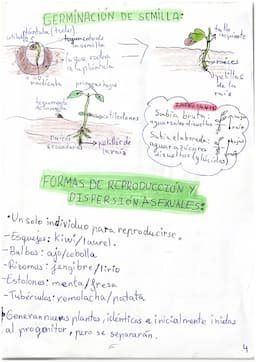 GERMINACIÓN DE SEMILLA:
plántula (todo)
tegumento de
la semilla
lo que rodea
a la plántula
radícula
tallo
raíces
pelillos de
la raíz
primeras hojas
tegumento
cotiledones
raíces
secundarias
pelillos de
la raíz
Savia bruta:
agua + sales disueltas
Savia elaborada:
agua + azúcares
disueltos (glúcidos)
FORMAS DE REPRODUCCIÓN Y
DISPERSIÓN ASEXUALES:
• Un solo individuo para reproducirse.
- Esquejes: Kiwi/laurel.
- Bulbos: ajo/cebolla
- Rizomas: jengibre/lirio
- Estolones: menta/fresa
- Tubérculos: remolacha/patata
• Generan nuevas plantas, idénticas e inicialmente unidas
al progenitor, pero se separarán.
4